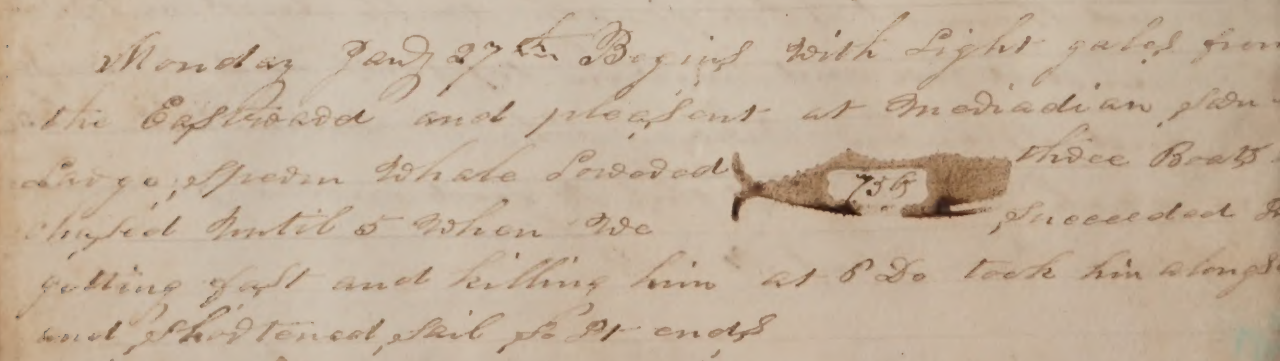 Monday Jany 27th Begins with Light gales from
the Eastward and pleasent at Meridian saw
Large Sperm Whale Lowered three Boats
75 b
chased untill 5 when we succeeded
getting fast and killing him at 6 Do took him alongs
and shortened sail so Pt ends